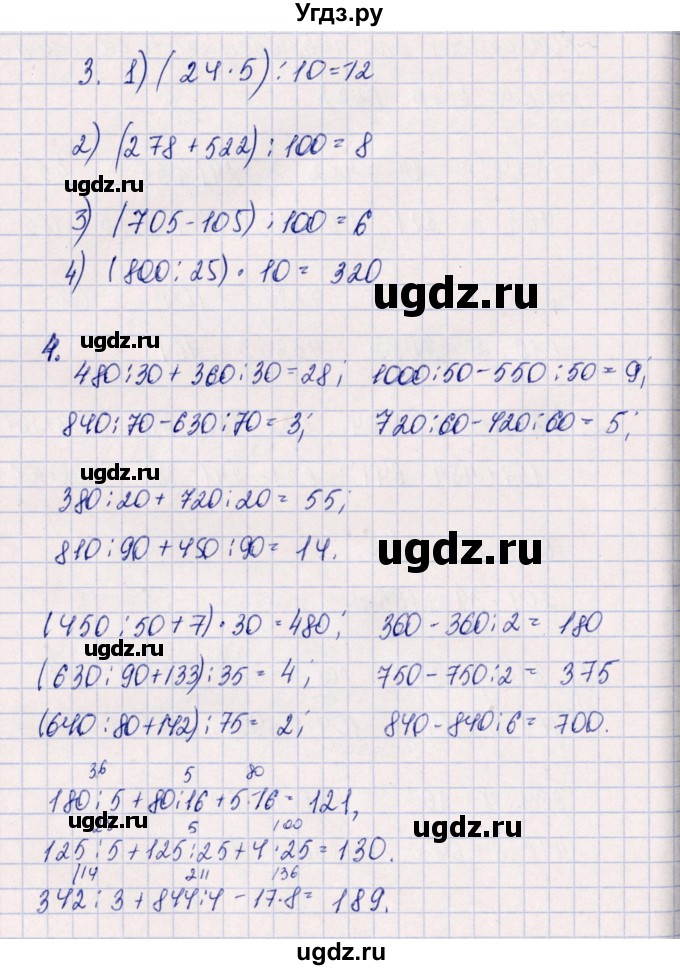 Угдз.ру
3. 1) (24·5):10=12
2) (278+522):100=8
ugdz.ru
3) (705-105):100=6
4) (800:25)·10= 320
ugdz.ru
4. ugdz.ru
480:30+360:30=28; 1000:50-550:50=9;
840:70-630:70=3; 720:60-420:60=5;
ugdz.ru
380:20+720:20=55;
810:90+450:90=14.
ugdz.ru
(450:50+7)·30=480; 360-360:2=180
ugdz.ru
(630:90+133):35=4; 750-750:2=375
(640:80+142):75=2; 840-840:6=700.
36 5 80
180:5+80:16+5·16=121,
ugdz.ru ugdz.ru
25 5 100
125:5+125:25+4·25=130.
114 211 136
342:3+844:4-17·8=189.
ugdz.ru